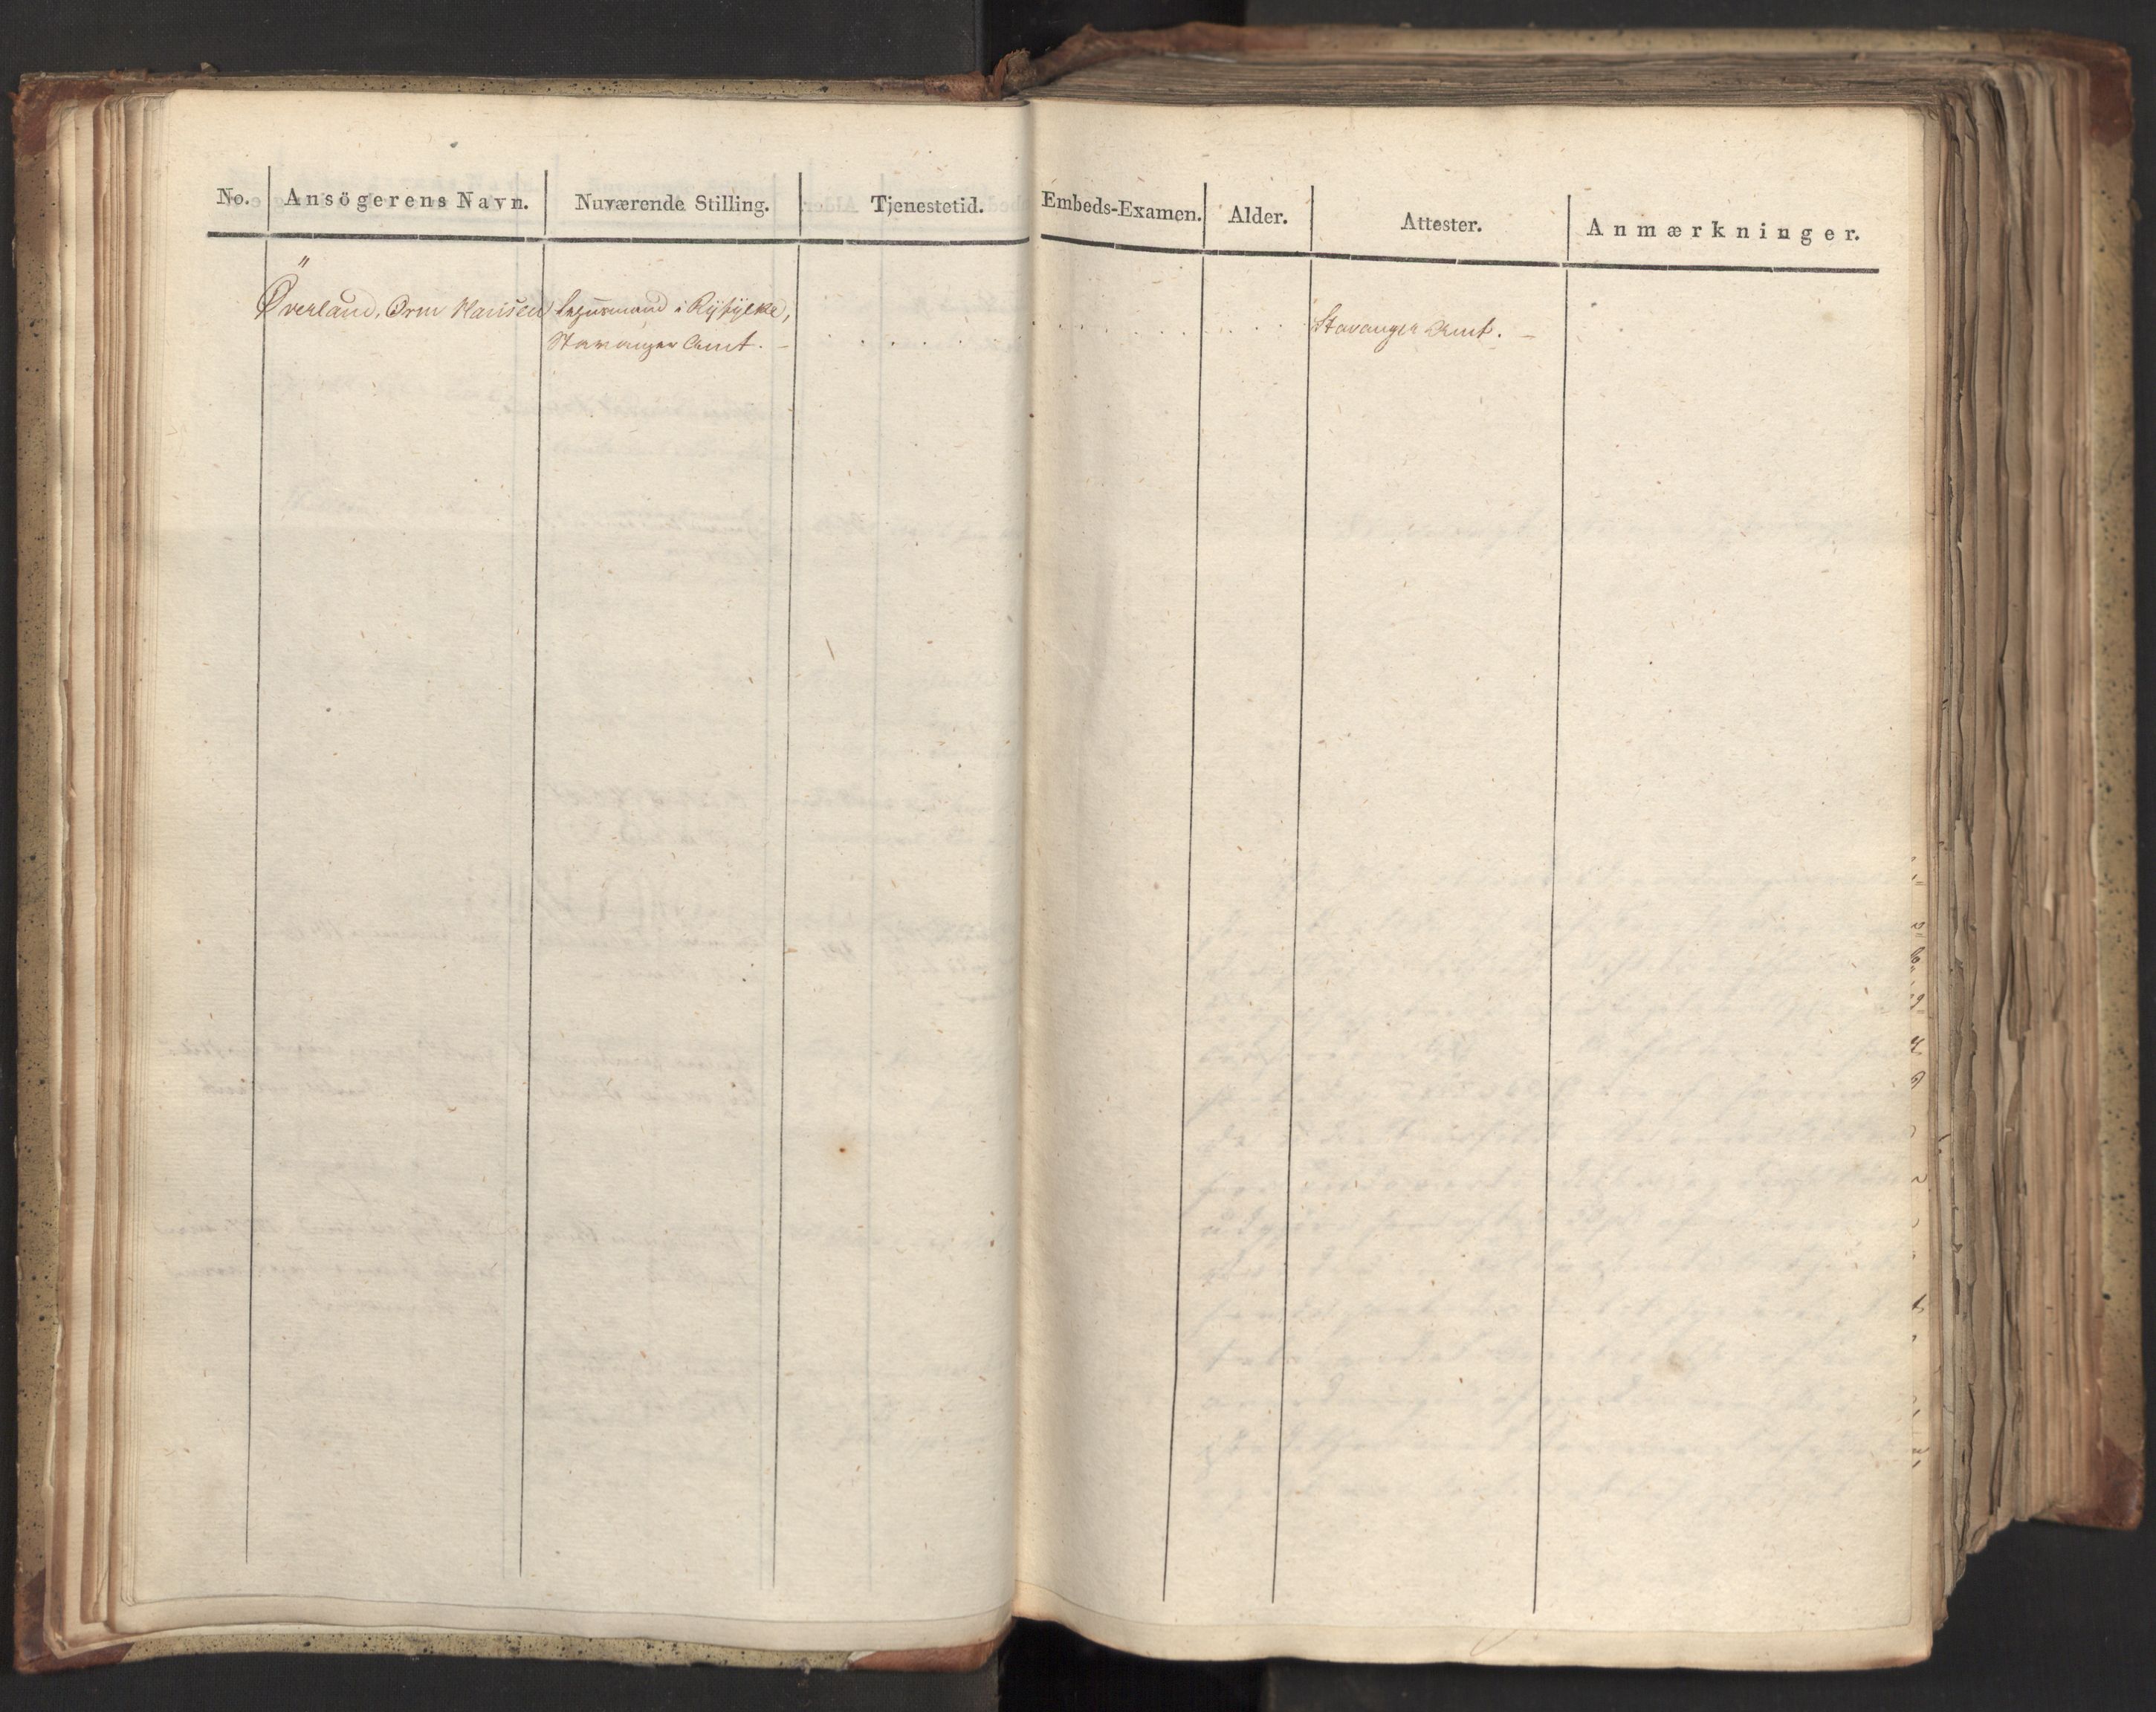 No. Ansögerens Navn. Nuværende Stilling. Tjenestetid. Embeds-Examen. Alder. Attester. Anmærkninger.
"
Överland, Orm Hansen Lensmand i Ryfylke, Stavanger Amt. –
Stavanger Amt. –